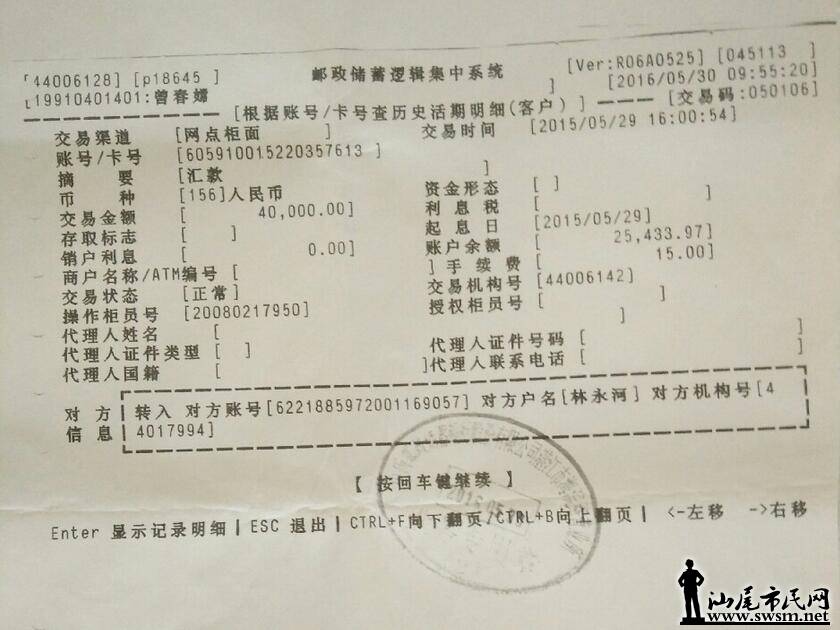 [44006128] [p18645 ] 邮政储蓄逻辑集中系统 [Ver:R06A0525] [045113 ]
[19910401401:曾春嫦 ] [2016/05/30 09:55:20]
[根据账号/卡号查历史活期明细(客户) ] [交易码:050106]
交易渠道 [网点柜面 ] 交易时间 [2015/05/29 16:00:54]
账号/卡号 [605910015220357613 ]
摘 要 [汇款 ]
币 种 [156]人民币 资金形态 [ ]
交易金额 [ 40,000.00] 利息税 [ ]
存取标志 [ ] 起息日 [2015/05/29]
销户利息 [ 0.00] 账户余额 [ 25,433.97]
商户名称/ATM编号 [ ]手续费 [ 15.00]
交易状态 [正常] 交易机构号 [44006142]
操作柜员号 [20080217950] 授权柜员号 [ ]
代理人姓名 [ ]
代理人证件类型 [ ] 代理人证件号码 [ ]
代理人国籍 [ ]代理人联系电话 [ ]
对方 转入 对方账号[6221885972001169057] 对方户名[林永河] 对方机构号[4
信息 4017994]
【 按回车键继续 】
Enter 显示记录明细| ESC 退出| CTRL+F向下翻页/CTRL+B向上翻页| <-左移 ->右移
汕尾市民网
www.swsm.net